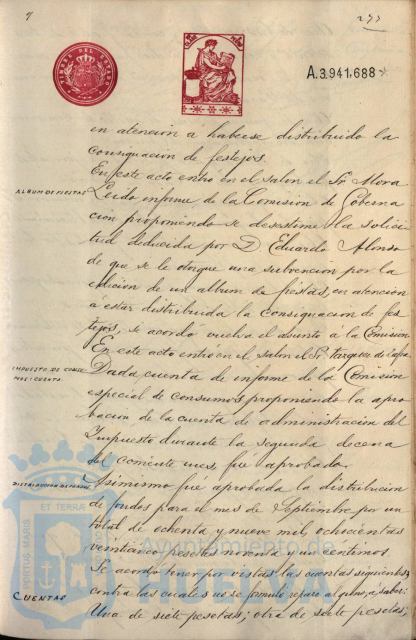 277
TIMBRE DEL ESTADO
A.3.941,688
en atención a haberse distribuido la
consignación de festejos.
En este acto entró en el salon el Sr. Mora
ALBUM DE FIESTAS
Leido informe de la Comision de Goberna
cion proponiendo se desestime la solici
tud deducida por D. Eduardo Alonso
de que se le otorgue una subvencion por la
edicion de un album de fiestas, en atencion
á estar distribuida la consignacion de fes
tejos, se acordó vuelva el asunto á la Comision
En este acto entró en el salon el Sr. Vazquez de
IMPUESTO DE CONSU
MOS: CUENTA
Dada cuenta de informe de la Comision
especial de consumos proponiendo la apro
bacion de la cuenta de administracion del
Impuesto durante la segunda decena
del corriente mes, fué aprobado.
DISTRIBUCION DE FONDOS
Asimismo fué aprobada la distribucion
de fondos para el mes de Septiembre por un
total de ochenta y nueve mil, ochocientas
veinticinco pesetas noventa y un centimos
CUENTAS
Se acordó tener por vistas las cuentas siguientes,
contra las cuales no se formuló reparo alguno, á saber:
Una de siete pesetas; otra de siete pesetas;
PORTUS MARIS
ET TERRA
Ayuntamiento de
HUELVA